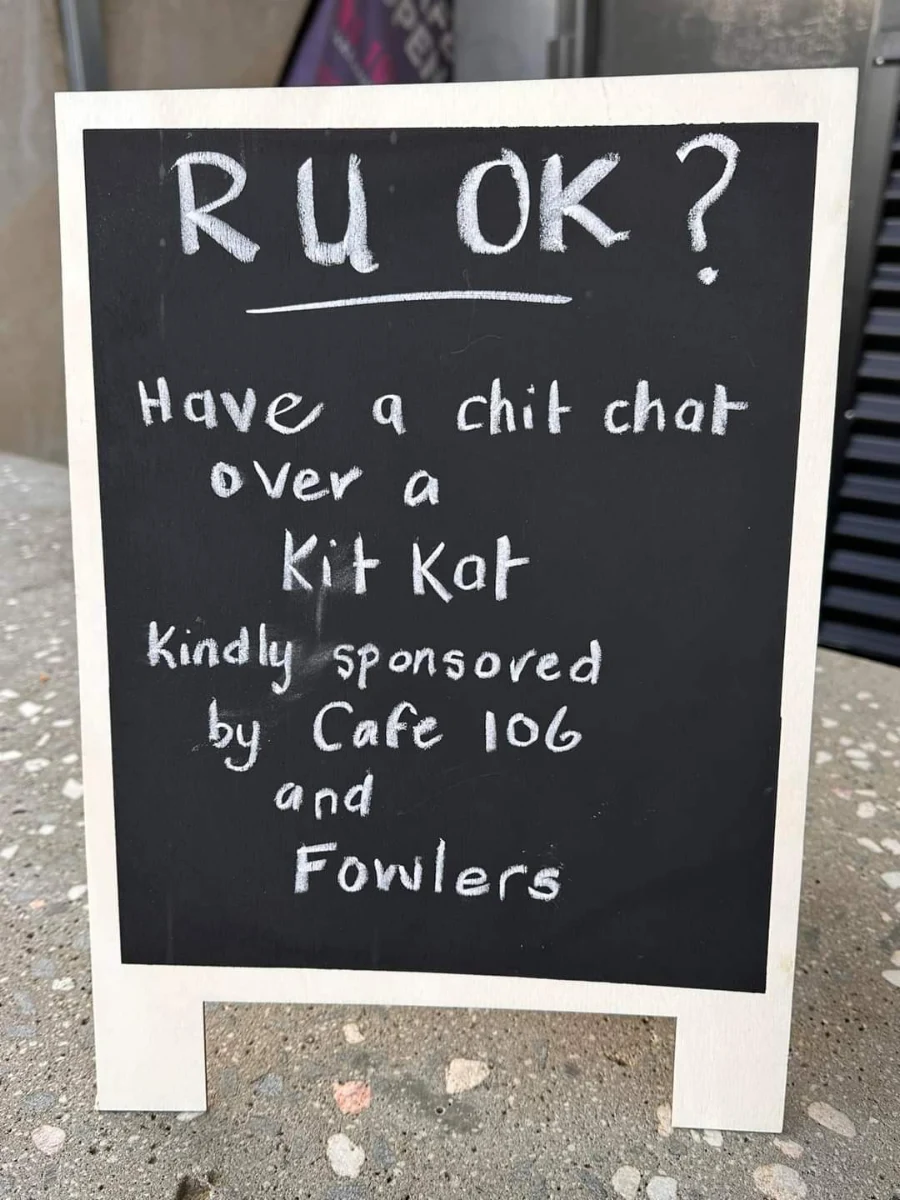 R U OK?
Have a chit chat
over a
Kit Kat
Kindly sponsored
by Cafe 106
and
Fowlers